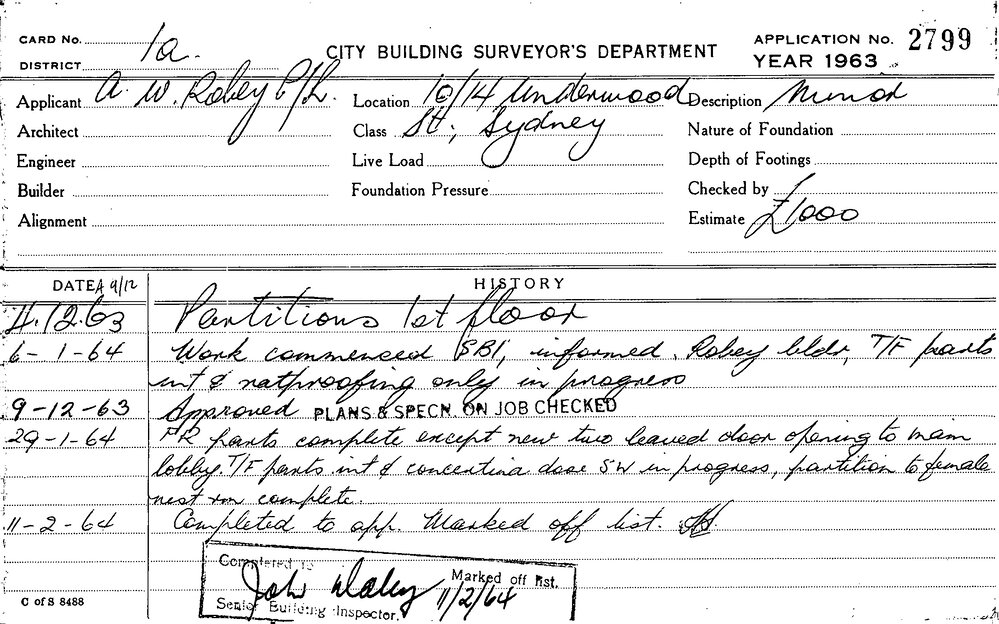 CARD No.
DISTRICT 1a.
CITY BUILDING SURVEYOR'S DEPARTMENT
APPLICATION No. 2799
YEAR 1963
Applicant A. W. Robey P/L. Location 10/14 Underwood Description Minor
Architect Class St, Sydney Nature of Foundation
Engineer Live Load Depth of Footings
Builder Foundation Pressure Checked by
Alignment Estimate £1000
DATE A 9/12 HISTORY
4.12.63 Partitions 1st floor
6-1-64 Work commenced SBI, informed. Robey bldr, T/F parts
int & ratproofing only in progress
9-12-63 Approved PLANS & SPECN. ON JOB CHECKED
29-1-64 FR parts complete except new two leaved door opening to main
lobby. T/F parts int & concertina door SW in progress, partition to female
rest rm complete.
11-2-64 Completed to app. Marked off list.
Completed to
Marked off list.
John Daley 11/2/64
Senior Building Inspector.
C of S 8488